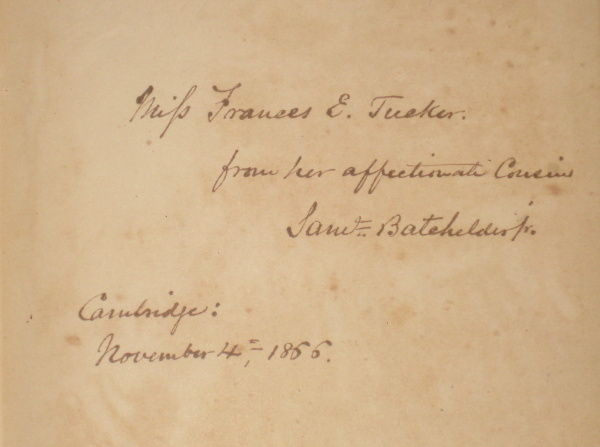 Miss Frances E. Tucker.
from her affectionate Cousin
Saml. Batchelder jr.
Cambridge:
November 4th, 1866.